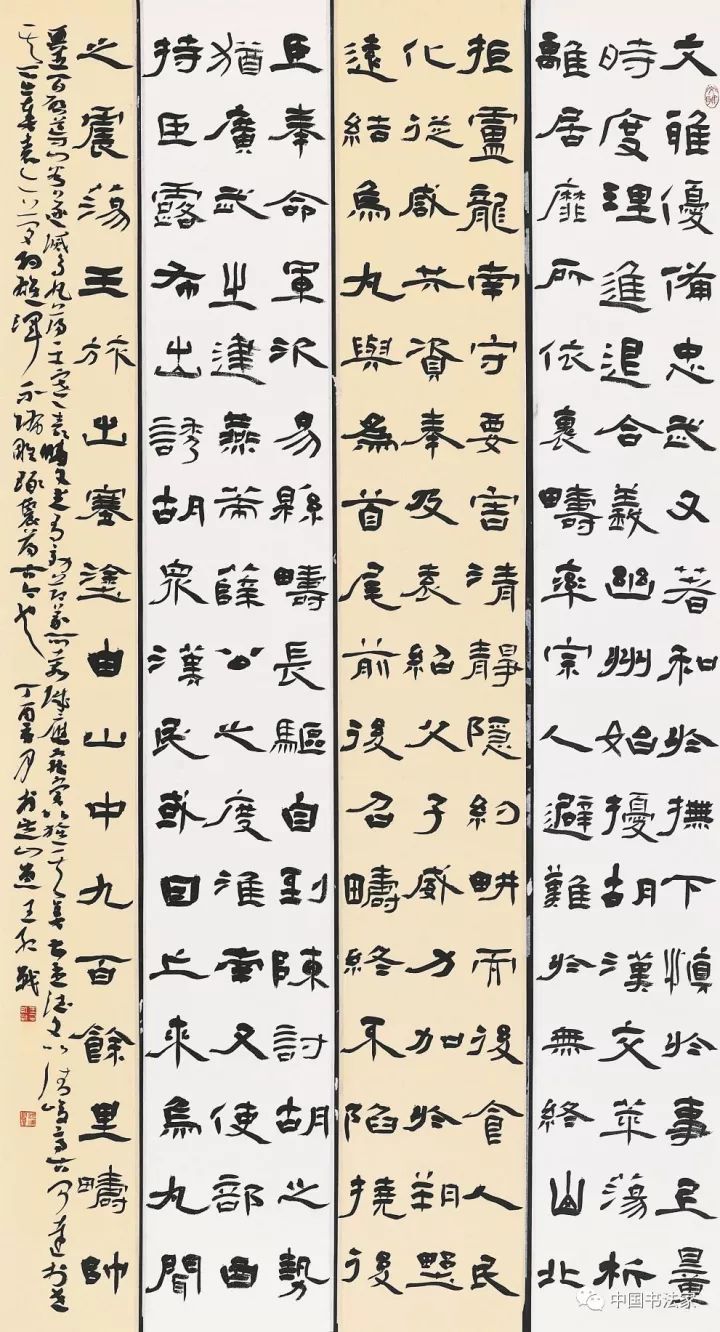 文雅優備忠武又著和於撫下慎於事上量
時度理進退合義幽州始擾胡漢交萃蕩析
離居靡所依褱疇率宗人避難於無終山北
拒盧龍南守要害清靜隱約耕而後食人民
化從咸共資奉及袁紹父子威力加於朔野
遠結烏丸與為首尾前後召疇終不陷撓後
臣奉命軍次易縣疇長驅自到陳討胡之勢
猶廣武之建燕策薛公之度淮南又使部曲
持臣露布出誘胡眾漢民或因亡來烏丸聞
之震蕩王旅出塞塗由山中九百餘里疇帥
兵五百啟導山谷遂滅烏丸蕩平塞表疇文武有效節義可嘉誠應寵賞以旌其美
丁酉
中国书法家